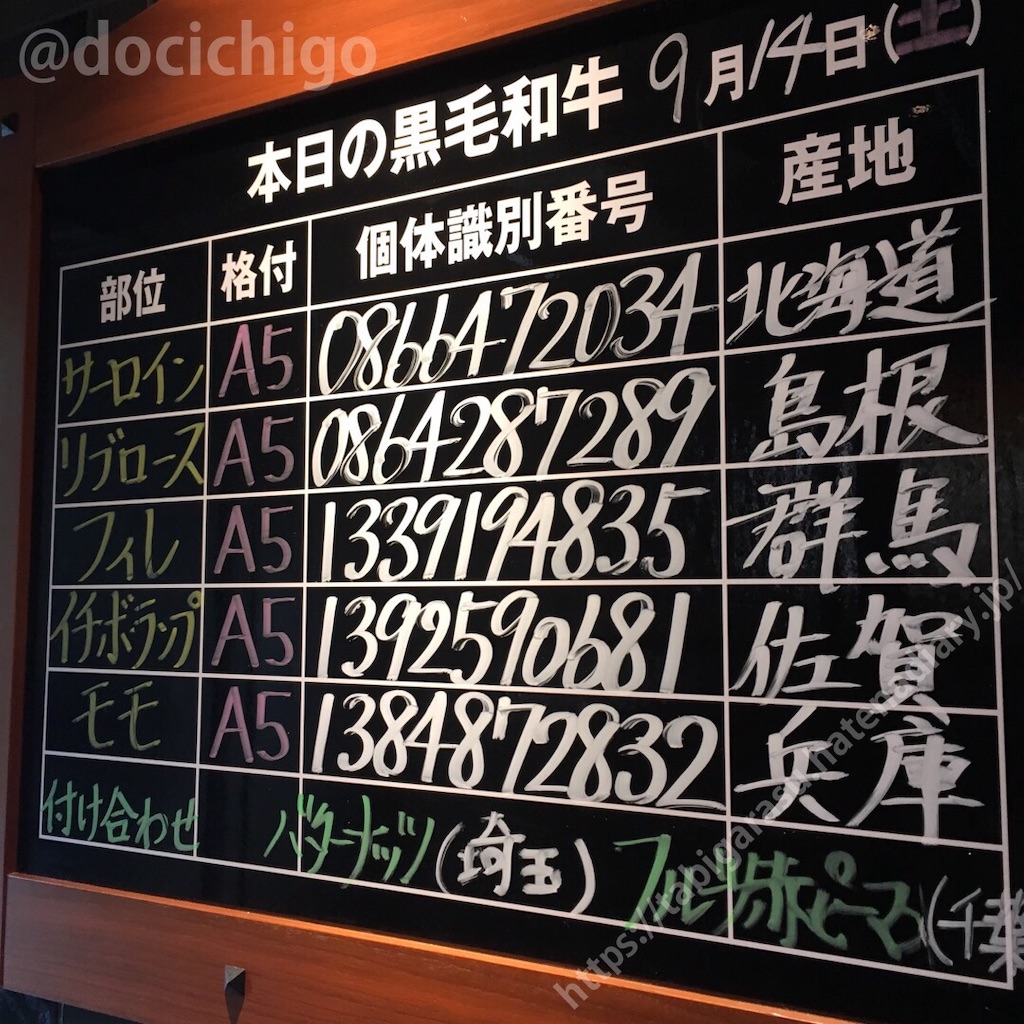 @docichigo
本日の黒毛和牛 9月14日(土)
部位 格付 個体識別番号 産地
サーロイン A5 0866472034 北海道
リブロース A5 0864287289 島根
フィレ A5 1339194835 群馬
イチボランプ A5 1392590681 佐賀
モモ A5 1384872832 兵庫
付け合わせ バターナッツ(埼玉) フルーツ赤ピーマン(千葉
https://tabigarasu.hatenadiary.jp/